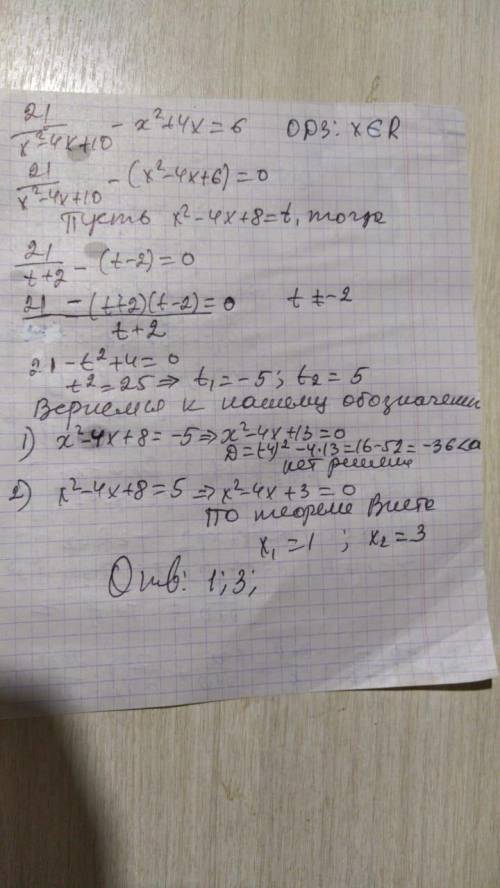 21/(x²-4x+10) - x²+4x = 6   ОДЗ: x∈R
21/(x²-4x+10) - (x²-4x+6) = 0
Пусть x²-4x+8=t, тогда
21/(t+2) - (t-2) = 0
(21 - (t+2)(t-2))/(t+2) = 0   t ≠ -2
21-t²+4=0
t²=25 ⇒ t₁=-5; t₂=5
Вернемся к нашему обозначени
1) x²-4x+8=-5 ⇒ x²-4x+13=0
D=(-4)²-4·13=16-52=-36<0
нет решения
2) x²-4x+8=5 ⇒ x²-4x+3=0
по теореме Виета
x₁=1 ; x₂=3
Отв: 1; 3;